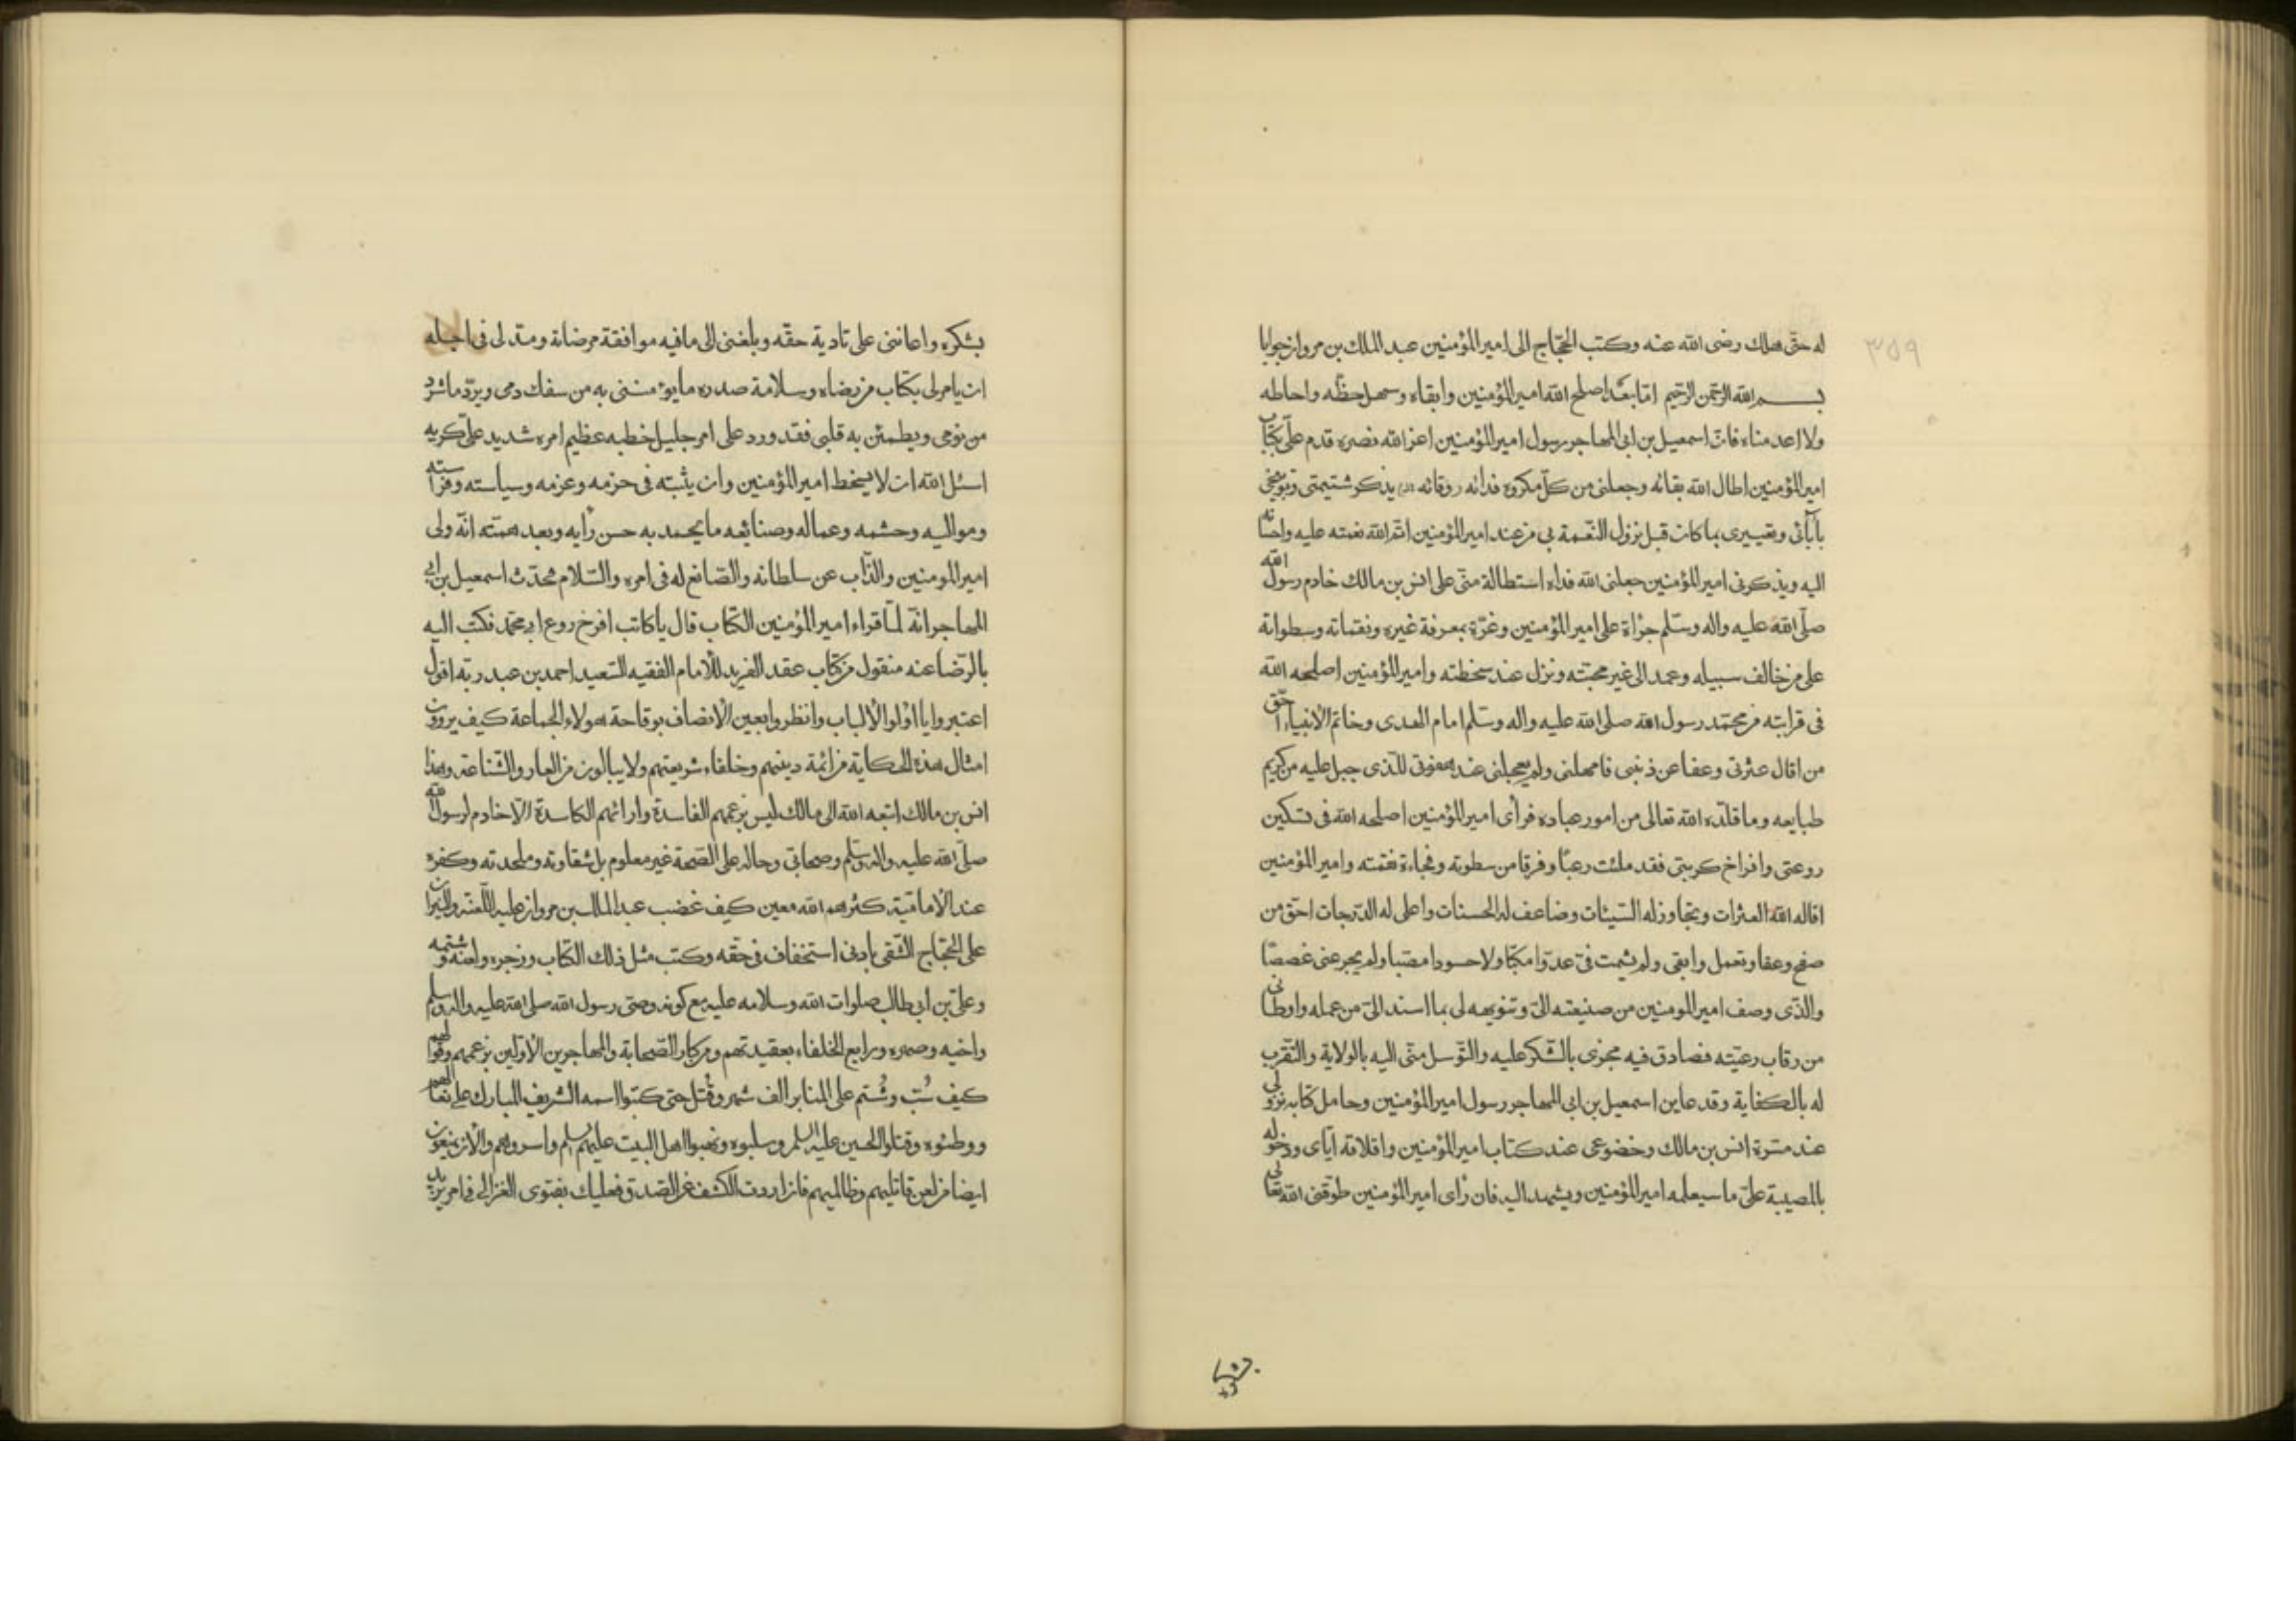 له حتى هلك رضى الله عنه وكتب الحجّاج الى امير المؤمنين عبد الملك بن مروان جوابا
بسم الله الرحمن الرحيم امّا بعد اصلح الله امير المؤمنين وابقاه وسهل حظّه واحاطه
ولا اعدمناه فانّ اسمعيل بن ابى المهاجر رسول امير المؤمنين اعز الله نصره قدم علّى بكتاب
امير المؤمنين اطال الله بقائه وجعلنى من كلّ مكروه فدائه يذكر شتيمتى وتوبيخى
بآبائى وتعييرى بما كان قبل نزول النّعمة بى من عند امير المؤمنين اتمّ الله نعمته عليه واحسانه
اليه ويذكرنى امير المؤمنين جعلنى الله فداه استطالة منّى على انس بن مالك خادم رسول الله
صلّى الله عليه واله وسلّم جرأة على امير المؤمنين وغرّة بمعرفة غيره ونقماته وسطواته
على من خالف سبيله وعمد الى غير محجّته ونزل عند سخطته وامير المؤمنين اصلحه الله
فى قرابته من محمّد رسول الله صلى الله عليه واله وسلّم امام الهدى وخاتم الأنبياء احقّ
من اقال عثرتى وعفا عن ذنبى فامهلنى ولم يعجلنى عند هفوتى للّذى جبل عليه من كريم
طبايعه وما قلّده الله تعالى من امور عباده فرأى امير المؤمنين اصلحه الله فى تسكين
روعتى وافراخ كربتى فقد ملئت رعبًا وفرقا من سطوته وفجاءة نقمته وامير المؤمنين
اقاله الله العثرات وتجاوز له السّيئات وضاعف له الحسنات واعلى له الدّرجات احقّ من
صفح وعفا وتعمل وابقى ولم يشمت فىّ عدوّا مكبّا ولا حسودا مضبا ولم يجرعنى غصصًا
والذّى وصف امير المومنين من صنيعته الىّ وتنويهه لى بما اسند الىّ من عمله واوطانى
من رقاب رعيّته فصادق فيه مجزى بالشّكر عليه والتّوسل منّى اليه بالولاية والتّقرب
له بالكفاية وقد عاين اسمعيل بن ابى المهاجر رسول امير المؤمنين وحامل كتابه نزولى
عند مسرّة انس بن مالك وخضوعى عند كتاب امير المؤمنين واقلاقه ايّاى ودخوله
بالمصيبة علىّ ما سيعلمه امير المؤمنين وينهيه اليه فان رأى امير المؤمنين طوّقنى الله تعالى
بشكره
بشكره واعاننى على تادية حقّه وبلغنى الى ما فيه موافقة مرضاته ومدّ لى فى اجله
ان يامر لى بكتاب من رضاه وسلامة صدره ما يؤمننى به من سفك دمى ويردّ ما شرد
من نومى ويطمئن به قلبى فقد ورد على امر جليل خطبه عظيم امره شديد علىّ كربه
اسئل الله ان لا يسخط امير المؤمنين وان يثبته فى حزمه وعزمه وسياسته وفراسته
ومواليه وحشمه وعماله وصنائعه ما يحمد به حسن رأيه وبعد همّته انّه ولى
امير المومنين والذّاب عن سلطانه والصّانع له فى امره والسّلام محدّث اسمعيل بن ابى
المهاجر انّه لمّا قراء امير المؤمنين الكتاب قال يا كاتب افرخ روع ابى محمّد فكتب اليه
بالرّضا عنه منقول من كتاب عقد الفريد للامام الفقيه السّعيد احمد بن عبد ربّه اقول
اعتبروا يا اولوا الألباب وانظروا بعين الأنصاف بوقاحة هولاء الجماعة كيف يروون
امثال هذه الحكاية من ائمة دينهم وخلفاء شريعتهم ولا يبالون من العار والشّناعة وهذا
انس بن مالك اتبعه الله الى مالك ليس بزعمهم الفاسدة وارائهم الكاسدة الّا خادم لرسول الله
صلّى الله عليه واله وسلّم وصحابى وحاله على الصّحة غير معلوم بل شقاوته وملحدته وكفره
عند الأماميّة كثّرهم الله معين كيف غضب عبد الملك بن مروان عليه اللّعنة والنيران
على الحجّاج الثّقفى بادنى استخفاف فى حقّه وكتب مثل ذلك الكتاب وزجره ولعنه وشتمه
وعلىّ بن ابى طالب صلوات الله وسلامه عليه مع كونه وصىّ رسول الله صلى الله عليه واله وسلم
واخيه وصهره ورابع الخلفاء بعقيدتهم ومن كبار الصّحابة والمهاجرين الأوّلين بزعمهم وقولهم
كيف سُبّ وشُتم على المنابر الف شهر وقُتل حتى كتبوا اسمه الشريف المبارك على نعالهم
ووطئوه وقتلوا الحسين عليه السلم وسلبوه ونهبوا اهل البيت عليهم السلم واسروهم والأن يمنعون
ايضا من لعن قاتليهم وظالميهم فان اردت الكشف عن الصّدق فعليك بفتوى الغزالى فى امر يزيد